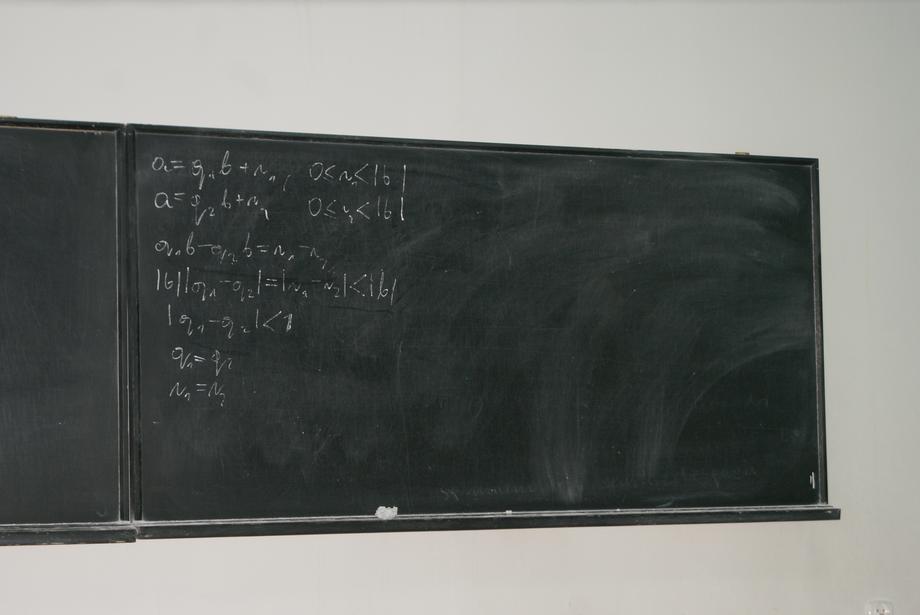 a = q₁b + r₁, 0 ≤ r₁ < |b|
a = q₂b + r₂ 0 ≤ r₂ < |b|
q₁b - q₂b = r₁ - r₂
|b||q₁ - q₂| = |r₁ - r₂| < |b|
|q₁ - q₂| < 1
q₁ = q₂
r₁ = r₂